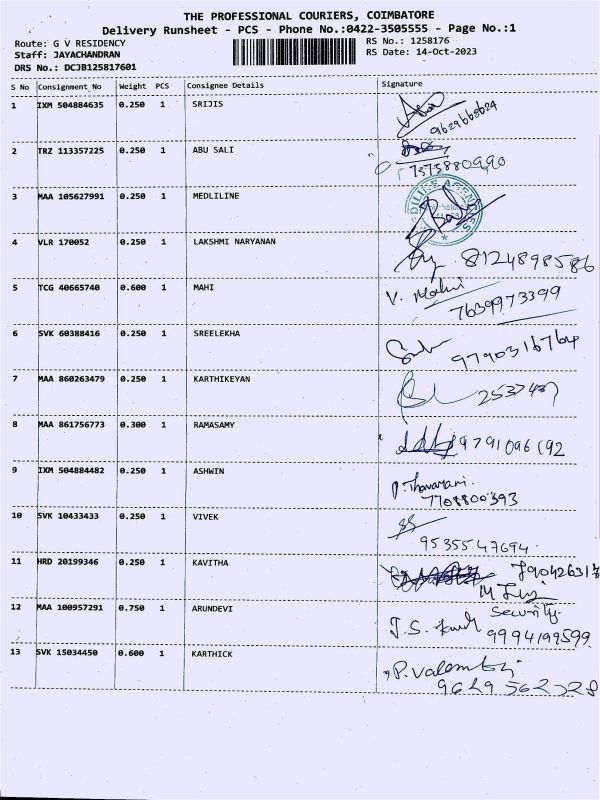 THE PROFESSIONAL COURIERS, COIMBATORE
Delivery Runsheet - PCS - Phone No.:0422-3505555 - Page No.:1
Route: G V RESIDENCY
RS No.: 1258176
Staff: JAYACHANDRAN
RS Date: 14-Oct-2023
DRS No.: DCJB125817601
S No Consignment No Weight PCS Consignee Details Signature
1 IXM 504884635 0.250 1 SRIJIS
9629668624
2 TRZ 113357225 0.250 1 ABU SALI
7373880990
3 MAA 105627991 0.250 1 MEDLILINE
4 VLR 170052 0.250 1 LAKSHMI NARYANAN
8124898586
5 TCG 40665740 0.600 1 MAHI V. Mahi
7639973399
6 SVK 60388416 0.250 1 SREELEKHA
9790316764
7 MAA 860263479 0.250 1 KARTHIKEYAN
2537437
8 MAA 861756773 0.300 1 RAMASAMY
9791096192
9 IXM 504884482 0.250 1 ASHWIN
7708800393
10 SVK 10433433 0.250 1 VIVEK
9535547694.
11 HRD 20199346 0.250 1 KAVITHA
790426317
12 MAA 100957291 0.750 1 ARUNDEVI
Security
9994199599
13 SVK 15034450 0.600 1 KARTHICK
9629562328